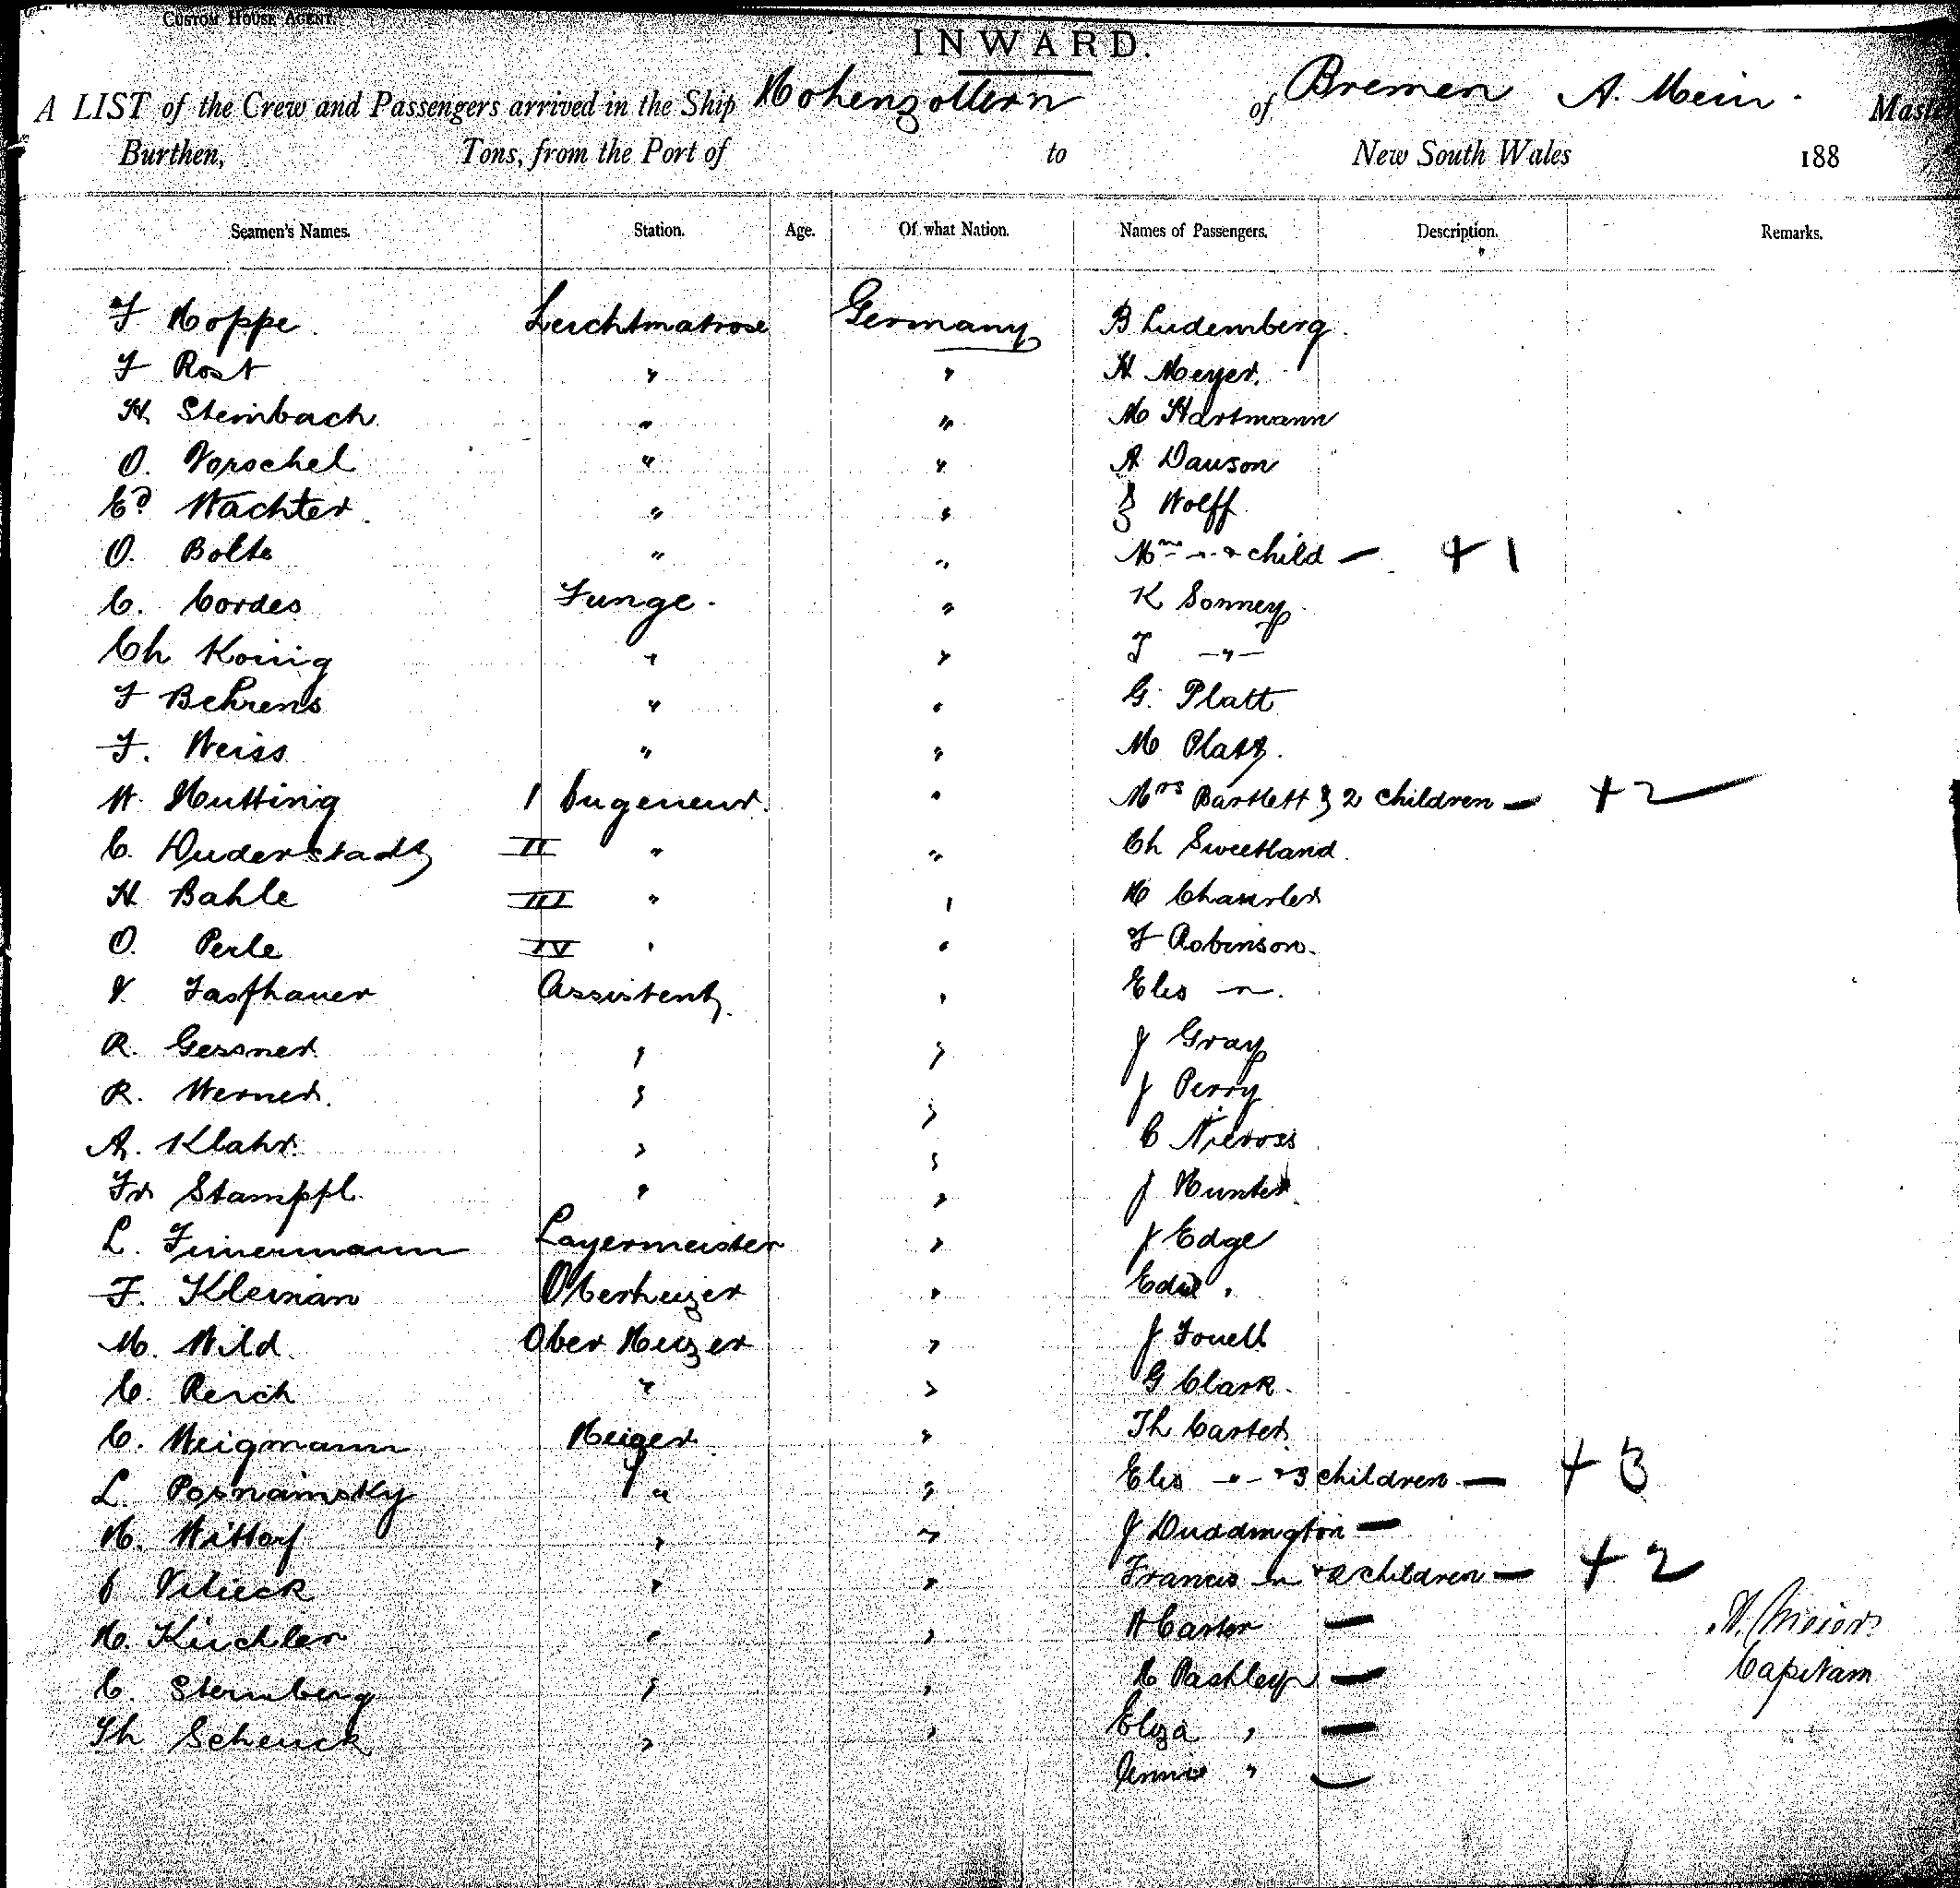 CUSTOM HOUSE AGENT
INWARD.
A LIST of the Crew and Passengers arrived in the Ship Hohenzollern of Bremen A. Meier. Master
Burthen, Tons, from the Port of to New South Wales 188
Seamen's Names. Station. Age. Of what Nation. Names of Passengers. Description. Remarks.
F Hoppe. Leichtmatrose Germany B Ludemberg.
F Rost " " H Meyer.
H. Steinbach " " M Hartmann
O. Vorschel " " A Dawson
Ed Wachter. " " J Wolff
O. Bolte " " Mrs " & child — + 1
C. Cordes Junge. " K Sonney
Ch König " " J —"—
F Behrens " " G. Platt
F. Weiss " " M Platt.
W. Hutting 1 Ingenieur. " Mrs Bartlett & 2 children — + 2
C. Duderstadt II " " Ch Sweetland.
H Bahle III " " H
O. Perle IV " " F Robinson.
Assistent. " Elis —"—.
R. Gessner. " " J Gray
R. Werner. " " J Perry
A. Klahr. " " C
Fr Stamppl. " " J Hunter.
L. Lagermeister " J Edge
F. Kleinan Oberheizer " Edie "
M. Wild. Ober Heizer " J
C. Reich " " G Clark.
C. Weigmann Heizer. " Th Carter.
L. Posnainsky " " Elis —"— & 3 children — + 3
H. Wittorf " " J Duddington —
" " Francis —"— & 2 children — + 2
H. Küchler " " A Carter — A. Meier.
C. Sternberg " " C Pashley — Capitain
Th Schenck " " Eliza " —
Annie " —